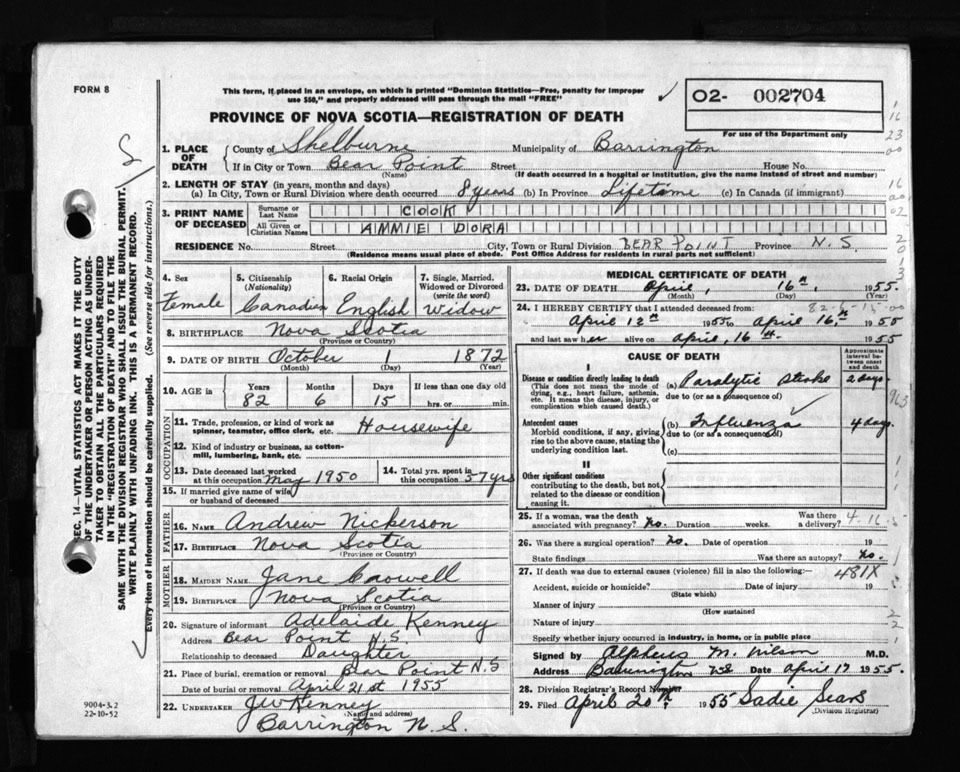 FORM 8
This form, if placed in an envelope, on which is printed "Dominion Statistics—Free, penalty for improper
use $50," and properly addressed will pass through the mail "FREE"
02- 002704
For use of the Department only
PROVINCE OF NOVA SCOTIA—REGISTRATION OF DEATH
SEC. 14—VITAL STATISTICS ACT MAKES IT THE DUTY
OF THE UNDERTAKER OR PERSON ACTING AS UNDER-
TAKER TO OBTAIN ALL THE PARTICULARS REQUIRED
IN THE "REGISTRATION OF DEATH" AND TO FILE THE
SAME WITH THE DIVISION REGISTRAR WHO SHALL ISSUE THE BURIAL PERMIT.
WRITE PLAINLY WITH UNFADING INK. THIS IS A PERMANENT RECORD.
Every item of information should be carefully supplied. (See reverse side for instructions.)
1. PLACE OF DEATH
County of Shelburne Municipality of Barrington
If in City or Town Bear Point Street House No.
(Name) (If death occurred in a hospital or institution, give the name instead of street and number)
2. LENGTH OF STAY (in years, months and days)
(a) In City, Town or Rural Division where death occurred 8 years (b) In Province Lifetime (c) In Canada (if immigrant)
3. PRINT NAME OF DECEASED
Surname or Last Name COOK
All Given or Christian Names AMMIE DORA
RESIDENCE No. Street City, Town or Rural Division BEAR POINT Province N.S.
(Residence means usual place of abode. Post Office Address for residents in rural parts not sufficient)
4. Sex
Female
5. Citizenship
(Nationality)
Canadian
6. Racial Origin
English
7. Single, Married, Widowed or Divorced
(write the word)
Widow
8. BIRTHPLACE Nova Scotia
(Province or Country)
9. DATE OF BIRTH October 1 1872
(Month) (Day) (Year)
10. AGE in
Years Months Days If less than one day old
82 6 15 hrs. or min.
OCCUPATION
11. Trade, profession, or kind of work as
spinner, teamster, office clerk, etc. Housewife
12. Kind of industry or business, as cotton-
mill, lumbering, bank, etc.
13. Date deceased last worked
at this occupation May 1950
14. Total yrs. spent in
this occupation 57 yrs
15. If married give name of wife
or husband of deceased
FATHER
16. NAME Andrew Nickerson
17. BIRTHPLACE Nova Scotia
(Province or Country)
MOTHER
18. MAIDEN NAME Jane
19. BIRTHPLACE Nova Scotia
(Province or Country)
20. Signature of informant Adelaide Kenney
Address Bear Point N.S.
Relationship to deceased Daughter
21. Place of burial, cremation or removal Bear Point N.S
Date of burial or removal April 21st 1955
22. UNDERTAKER J W Kenney
(Name and address)
Barrington N.S.
9004-3.2
22-10-52
MEDICAL CERTIFICATE OF DEATH
23. DATE OF DEATH April, 16th, 1955.
(Month) (Day) (Year)
24. I HEREBY CERTIFY that I attended deceased from: 82-6-15-00
April 12th 1955 to April 16th, 1955
and last saw her alive on April, 16th. 1955
CAUSE OF DEATH
Approximate interval between onset and death
I
Disease or condition directly leading to death
(This does not mean the mode of
dying, e.g., heart failure, asthenia,
etc. It means the disease, injury, or
complication which caused death.)
(a) Paralytic Stroke 2 days
due to (or as a consequence of)
Antecedent causes
Morbid conditions, if any, giving
rise to the above cause, stating the
underlying condition last.
(b) Influenza 4 days.
due to (or as a consequence of)
(c)
II
Other significant conditions
contributing to the death, but not
related to the disease or condition
causing it.
25. If a woman, was the death
associated with pregnancy? No. Duration weeks.
Was there a delivery?
4-16
26. Was there surgical operation? No. Date of operation 19
State findings Was there an autopsy? No.
27. If death was due to external causes (violence) fill in also the following:
481X
Accident, suicide or homicide? Date of injury 19
(State which)
Manner of injury
(How sustained
Nature of injury
Specify whether injury occurred in industry, in home, or in public place
Signed by Alpheus M. Wilson M.D.
Address Barrington N.S Date April 17 1955.
28. Division Registrar's Record Number
29. Filed April 20th, 1955 Sadie Sears
(Division Registrar)